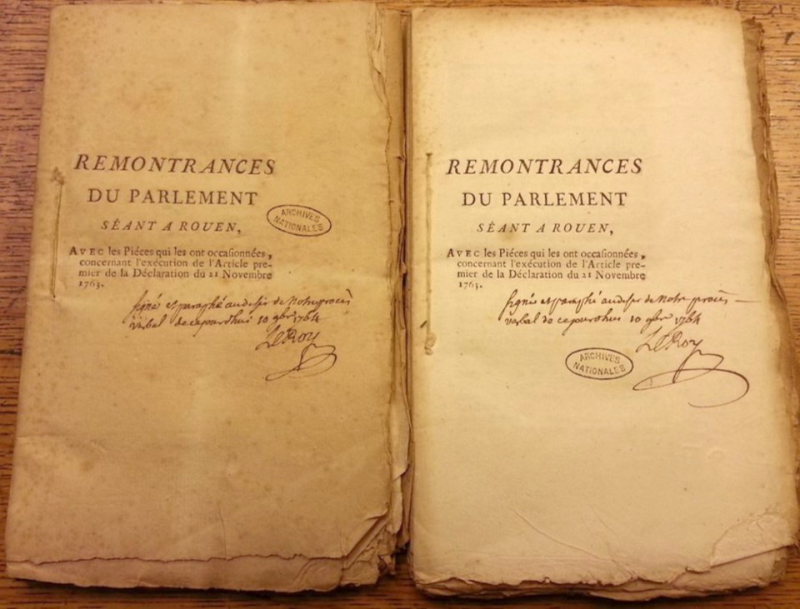 REMONTRANCES
DU PARLEMENT
SÉANT A ROUEN,
ARCHIVES
NATIONALES
AVEC les Piéces qui les ont occasionnées,
concernant l'exécution de l'Article pre-
mier de la Déclaration du 21 Novembre
1763.
signé et paraphé au desir de Notre procès
verbal de cejourdhui 10 9bre 1764
LeRoy
REMONTRANCES
DU PARLEMENT
SÉANT A ROUEN,
AVEC les Piéces qui les ont occasionnées,
concernant l'exécution de l'Article pre-
mier de la Déclaration du 21 Novembre
1763.
signé et paraphé au desir de Notre procès
verbal de cejourdhui 10 9bre 1764
LeRoy
ARCHIVES
NATIONALES